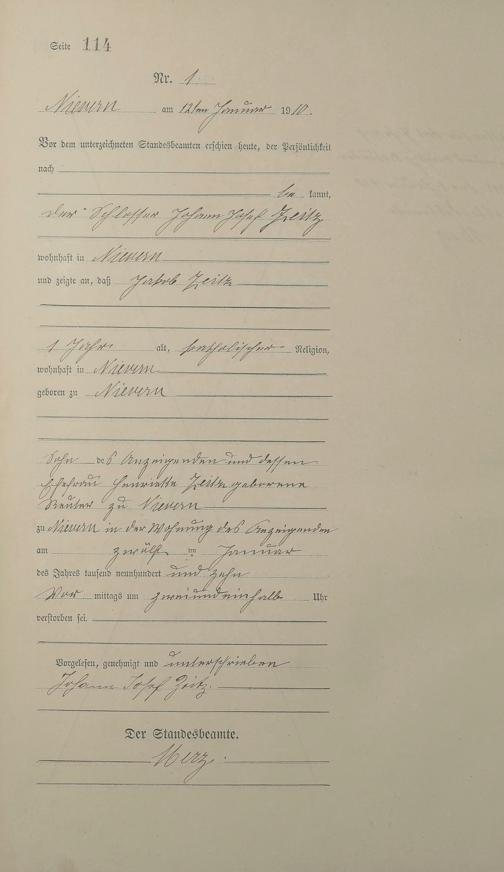 Seite 114
Nr. 1
Nievern am 12ten Januar 1910.
Vor dem unterzeichneten Standesbeamten erschien heute, der Persönlichkeit
nach
be kannt,
der Schlosser Johann Josef Zeitz
wohnhaft in Nievern
und zeigte an, daß Jakob Zeitz
1 Jahr alt, katholischer Religion,
wohnhaft in Nievern
geboren zu Nievern
Sohn des Anzeigenden und dessen
Ehefrau Henriette Zeitz geborene
zu Nievern
zu Nievern in der Wohnung des Anzeigenden
am zwölf ten Januar
des Jahres tausend neunhundert und zehn
Vor mittags um zweiundeinhalb Uhr
verstorben sei.
Vorgelesen, genehmigt und unterschrieben
Johann Josef Zeitz.
Der Standesbeamte.
Merz.